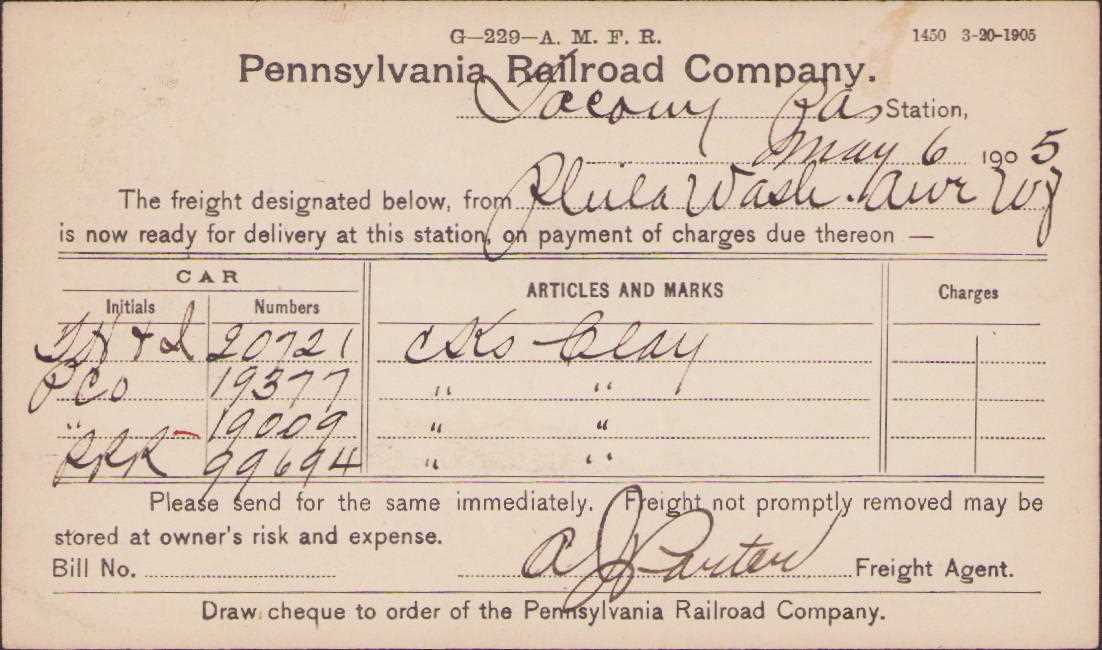 G-229-A. M. F. R. 1450 3-20-1905
Pennsylvania Railroad Company.
Tacony Pa Station,
May 6 1905
The freight designated below, from Phila Wash.
is now ready for delivery at this station, on payment of charges due thereon —
CAR
Initials Numbers ARTICLES AND MARKS Charges
& 20721 Cks Clay
PCo 19377 " "
" 19009 " "
PRR 99694 " "
Please send for the same immediately. Freight not promptly removed may be
stored at owner's risk and expense.
Bill No. Freight Agent.
Draw cheque to order of the Pennsylvania Railroad Company.